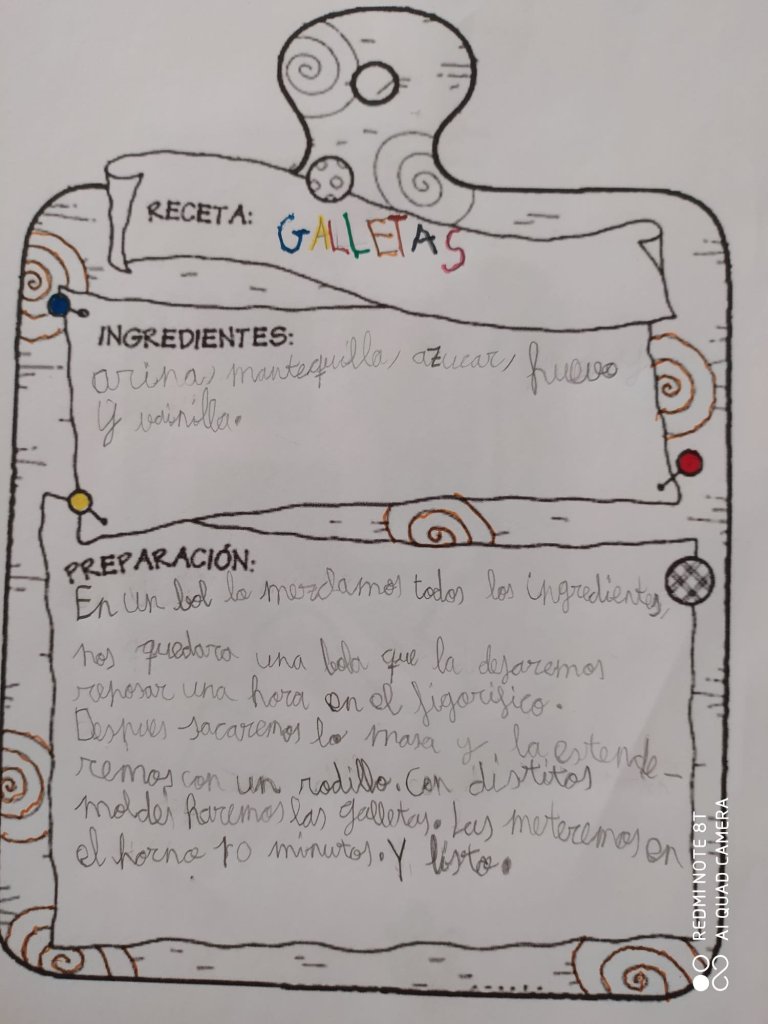 RECETA: GALLETAS
INGREDIENTES:
arina, mantequilla, azucar, huevo
y vainilla.
PREPARACIÓN:
En un bol lo mezclamos todos los ingredientes,
nos quedara una bola que la dejaremos
reposar una hora en el figorifico.
Despues sacaremos la masa y la estende-
remos con un rodillo. Con distitos
moldes haremos las galletas. Las meteremos en
el horno 10 minutos. Y listo.
REDMI NOTE 8T
AI QUAD CAMERA